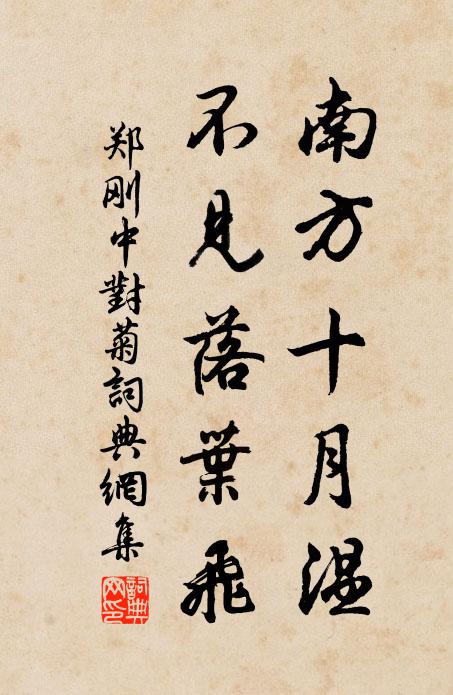 南方十月温
不見落葉飛
郑刚中對菊詞典網集
詞典网印